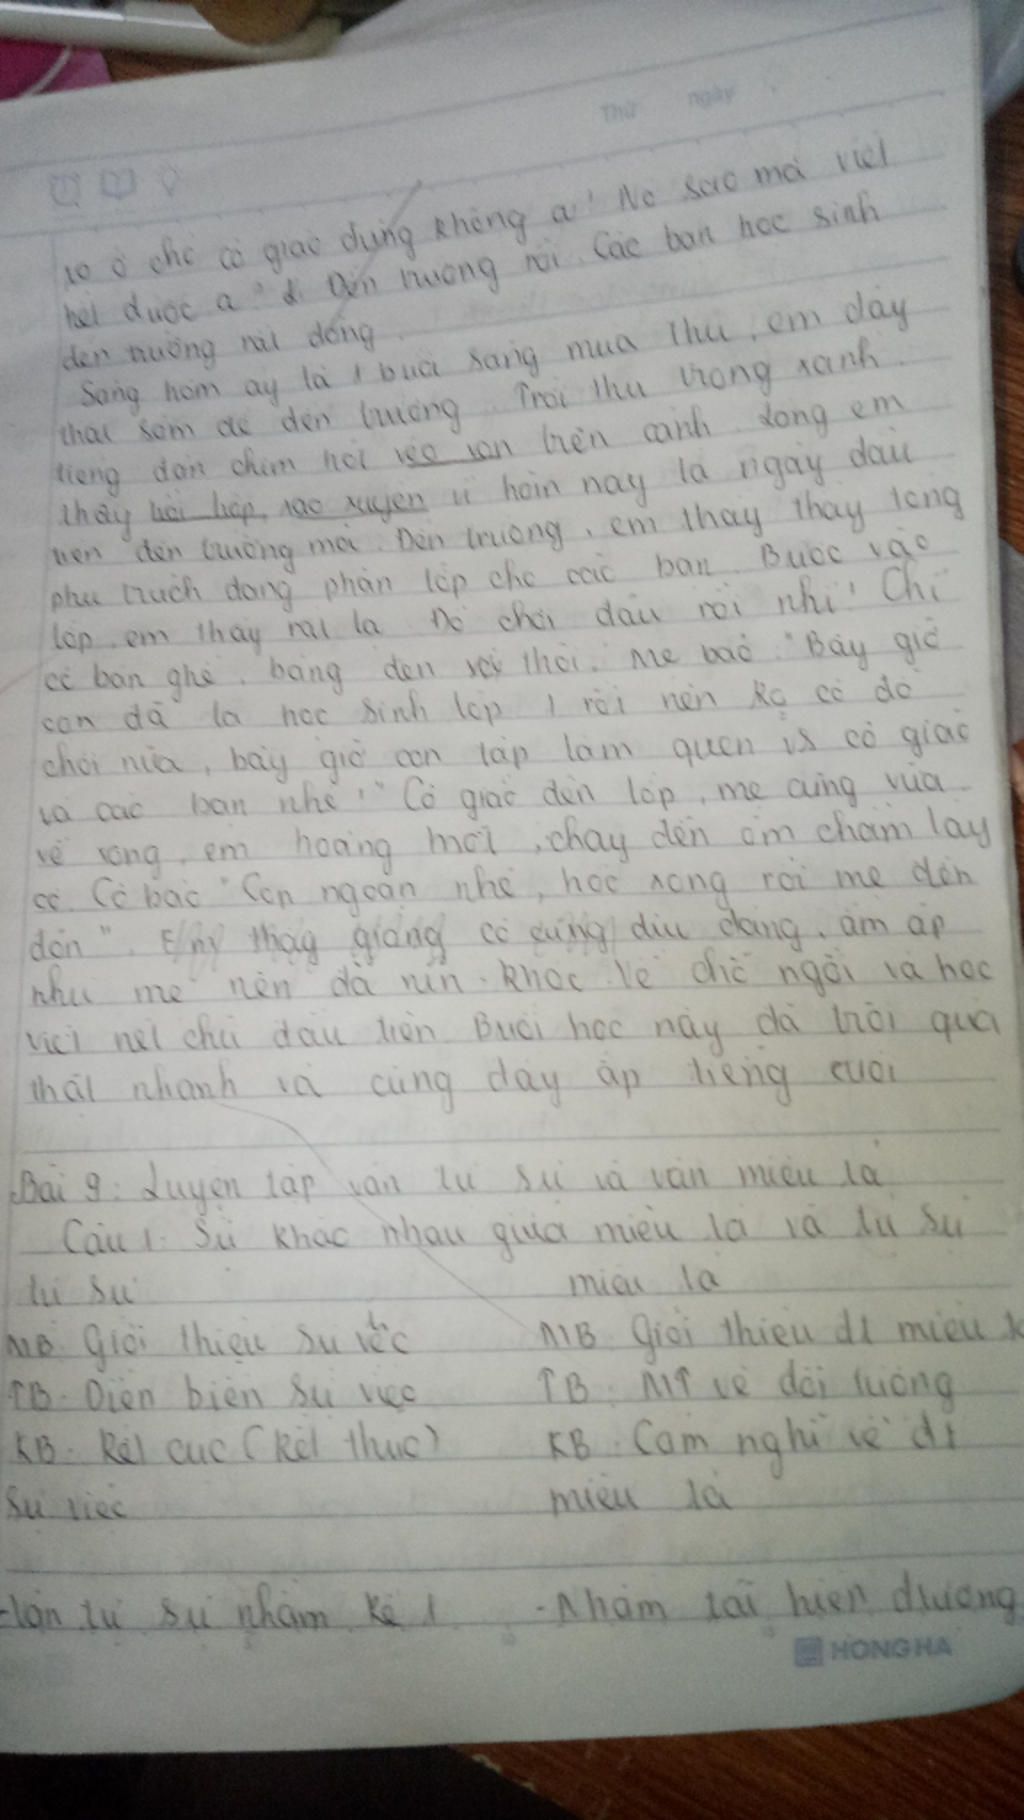 Thứ ngày
xo ở chỗ cô giáo đúng không ạ! Nó sao mà viết
hết được ạ" Đến trường rồi. Các bạn học sinh
đến trường rất đông.
Sáng hôm ấy là 1 buổi sáng mùa thu, em dậy
thật sớm để đến trường. Trời thu trong xanh.
tiếng đàn chim hót véo von trên cành. Lòng em
thấy hồi hộp, xao xuyến vì hôm nay là ngày đầu
tiên đến trường mới. Đến trường, em thấy thầy tổng
phụ trách đang phân lớp cho các bạn. Bước vào
lớp, em thấy rất lạ. Đồ chơi đâu rồi nhỉ! Chỉ
có bàn ghế, bảng đen thôi. Mẹ bảo: "Bây giờ
con đã là học sinh lớp 1 rồi nên ko có đồ
chơi nữa, bây giờ con tập làm quen vs cô giáo
và các bạn nhé!" Cô giáo đến lớp, mẹ cũng vừa
về xong, em hoảng hốt, chạy đến ôm chầm lấy
cô. Cô bảo "Con ngoan nhé, học xong rồi mẹ đến
đón". Em thấy giọng cô cũng dịu dàng, ấm áp
như mẹ nên đã nín khóc về chỗ ngồi và học
viết nét chữ đầu tiên. Buổi học này đã trôi qua
thật nhanh và cũng đầy ắp tiếng cười
Bài 9: Luyện tập văn tự sự và văn miêu tả
Câu 1. Sự khác nhau giữa miêu tả và tự sự
tự sự miêu tả
MB: Giới thiệu sự việc MB: Giới thiệu đt miêu
TB: Diễn biến sự việc TB: MT về đối tượng
KB: Kết cục (kết thúc) KB: Cảm nghĩ về đt
sự việc miêu tả
tự sự nhằm kể 1 - Nhằm tái hiện đtượng
HONG HA